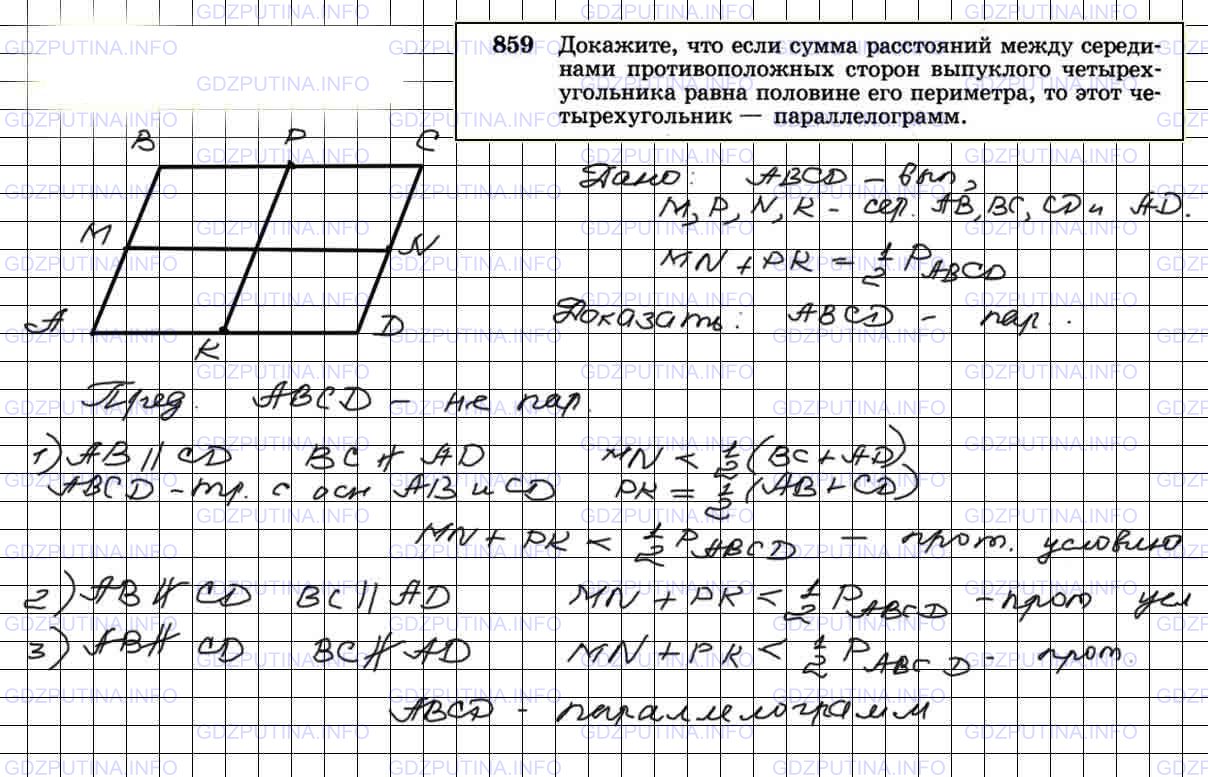 859 Докажите, что если сумма расстояний между середи-
нами противоположных сторон выпуклого четырех-
угольника равна половине его периметра, то этот че-
тырехугольник — параллелограмм.
B P C
M N
A D
K
Дано: ABCD – вып,
M, P, N, K - сер. AB, BC, CD и AD.
MN + PK = 1/2 P_ABCD
Доказать: ABCD - пар.
Пред. ABCD - не пар.
1) AB ∥ CD BC ∦ AD MN < 1/2 (BC + AD)
ABCD - тр. с осн AB и CD PK = 1/2 (AB + CD)
MN + PK < 1/2 P_ABCD - прот. условию
2) AB ∦ CD BC ∥ AD MN + PK < 1/2 P_ABCD - прот усл
3) AB ∦ CD BC ∦ AD MN + PK < 1/2 P_ABCD - прот.
ABCD - параллелограмм
GDZPUTINA.INFO